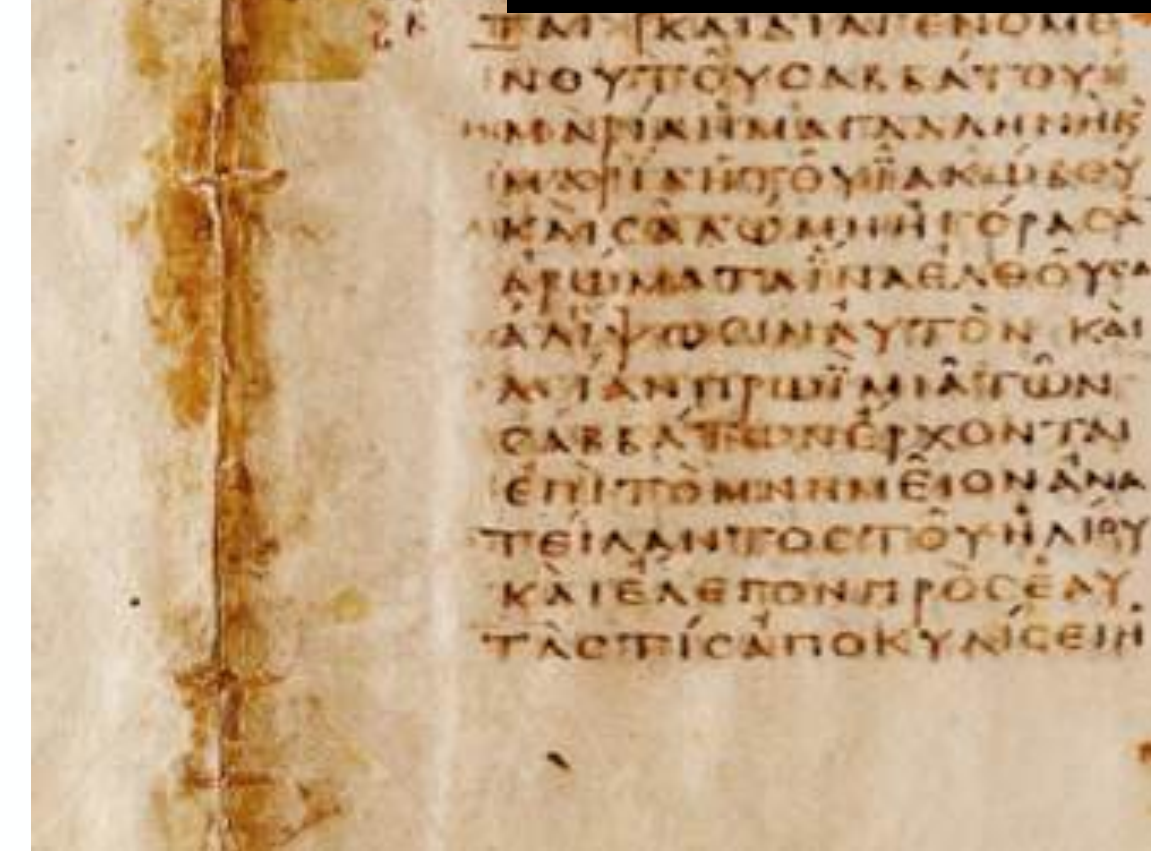 ΤΑΙ ΚΑΙΔΙΑΓΕΝΟΜΕ
ΝΟΥΤΟΥϹΑΒΒΑΤΟΥΗ
ΜΑΡΙΑΗΜΑΓΔΑΛΗΝΗΚ
ΜΑΡΙΑΗΤΟΥΪΑΚΩΒΟΥ
ΚΑΙϹΑΛΩΜΗΗΓΟΡΑϹΑ
ΑΡΩΜΑΤΑΪΝΑΕΛΘΟΥϹΑ
ΑΛΙΨΩϹΙΝΑΥΤΟΝ ΚΑΙ
ΛΙΑΝΠΡΩΪΜΙΑΤΩΝ
ϹΑΒΒΑΤΩΝΕΡΧΟΝΤΑΙ
ΕΠΙΤΟΜΝΗΜΕΙΟΝΑΝΑ
ΤΕΙΛΑΝΤΟϹΤΟΥΗΛΙΟΥ
ΚΑΙΕΛΕΓΟΝΠΡΟϹΕΑΥ
ΤΑϹΤΙϹΑΠΟΚΥΛΙϹΕΙΗ